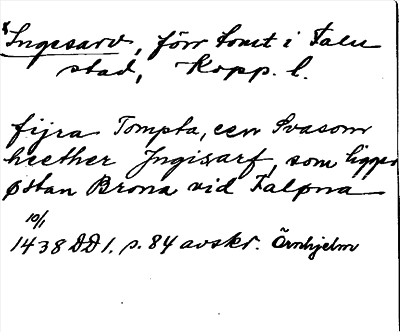 *Ingesarv, förr tomt i Falu
stad, Kopp. l.
fijra Tompta, een Svasom
heether Jngisarf, som ligger
østan Brona vid Falpna
10/1
1438 DD 1. s. 84 avskr. Örnhjelm